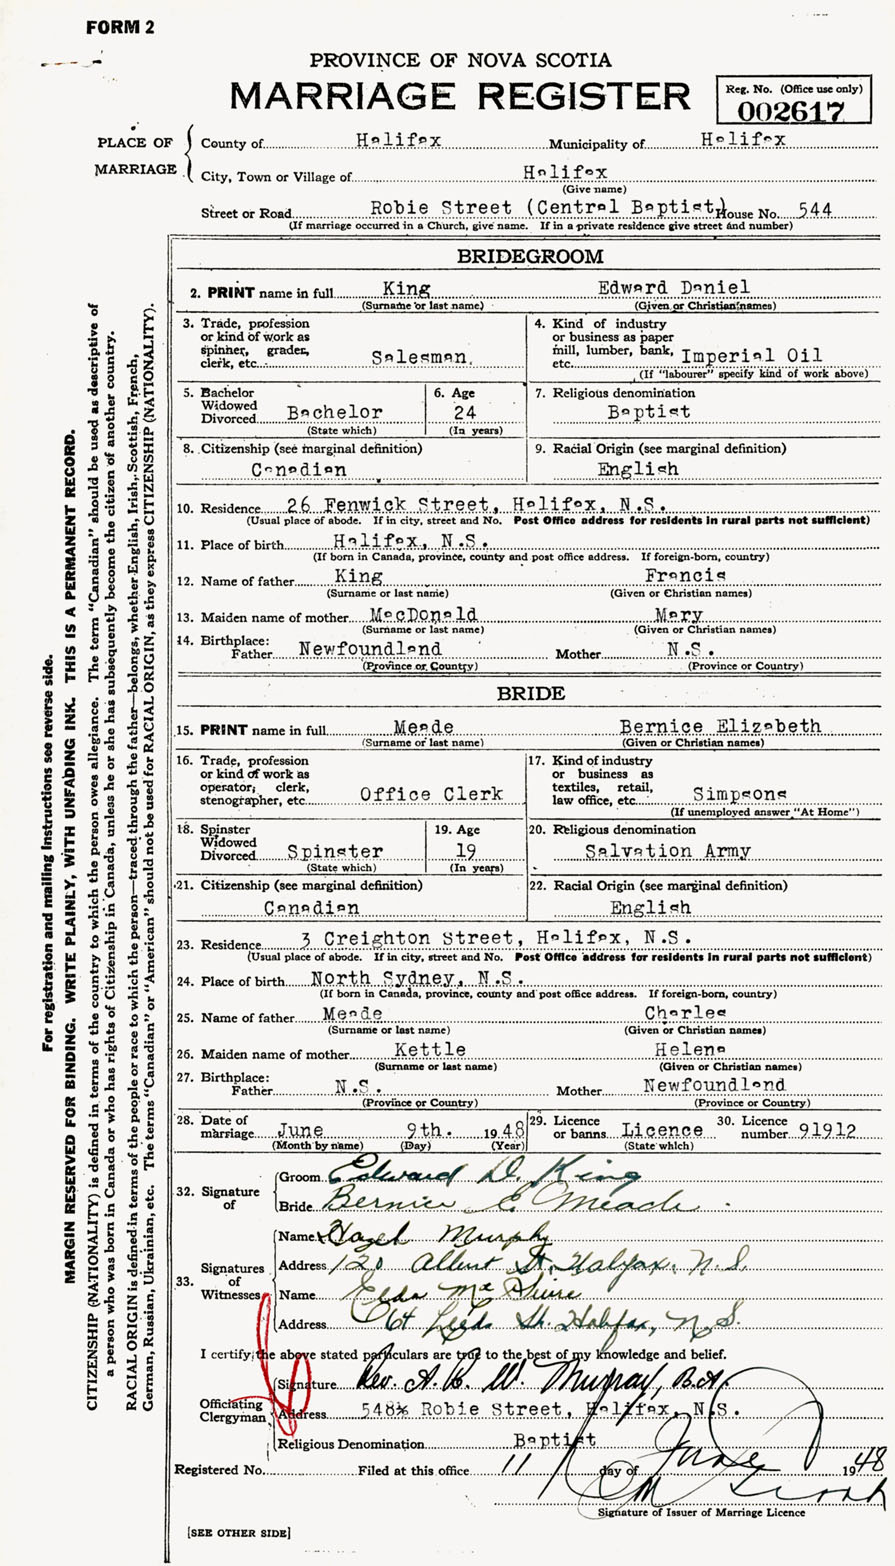 FORM 2
PROVINCE OF NOVA SCOTIA
MARRIAGE REGISTER
Reg. No. (Office use only)
002617
PLACE OF MARRIAGE
County of Halifax Municipality of Halifax
City, Town or Village of Halifax
(Give name)
Street or Road Robie Street (Central Baptist) House No. 544
(If marriage occurred in a Church, give name. If in a private residence give street and number)
BRIDEGROOM
2. PRINT name in full King Edward Daniel
(Surname or last name) (Given or Christian names)
3. Trade, profession or kind of work as spinner, grader, clerk, etc. Salesman.
4. Kind of industry or business as paper mill, lumber, bank, etc. Imperial Oil
(If "labourer" specify kind of work above)
5. Bachelor Widowed Divorced Bachelor
(State which)
6. Age 24
(In years)
7. Religious denomination
Baptist
8. Citizenship (see marginal definition)
Canadian
9. Racial Origin (see marginal definition)
English
10. Residence 26 Fenwick Street, Halifax, N.S.
(Usual place of abode. If in city, street and No. Post Office address for residents in rural parts not sufficient)
11. Place of birth Halifax, N.S.
(If born in Canada, province, county and post office address. If foreign-born, country)
12. Name of father King Francis
(Surname or last name) (Given or Christian names)
13. Maiden name of mother MacDonald Mary
(Surname or last name) (Given or Christian names)
14. Birthplace:
Father Newfoundland Mother N.S.
(Province or Country) (Province or Country)
BRIDE
15. PRINT name in full Meade Bernice Elizabeth
(Surname or last name) (Given or Christian names)
16. Trade, profession or kind of work as operator, clerk, stenographer, etc. Office Clerk
17. Kind of industry or business as textiles, retail, law office, etc. Simpsons
(If unemployed answer "At Home")
18. Spinster Widowed Divorced Spinster
(State which)
19. Age 19
(In years)
20. Religious denomination
Salvation Army
21. Citizenship (see marginal definition)
Canadian
22. Racial Origin (see marginal definition)
English
23. Residence 3 Creighton Street, Halifax, N.S.
(Usual place of abode. If in city, street and No. Post Office address for residents in rural parts not sufficient)
24. Place of birth North Sydney, N.S.
(If born in Canada, province, county and post office address. If foreign-born, country)
25. Name of father Meade Charles
(Surname or last name) (Given or Christian names)
26. Maiden name of mother Kettle Helena
(Surname or last name) (Given or Christian names)
27. Birthplace:
Father N.S. Mother Newfoundland
(Province or Country) (Province or Country)
28. Date of marriage June 9th. 1948
(Month by name) (Day) (Year)
29. Licence or banns Licence
(State which)
30. Licence number 91912
32. Signature of
Groom Edward D. King
Bride Bernice E. Meade
33. Signatures of Witnesses
Name Hazel Murphy
Address 120 Albert St. Halifax, N.S.
Name Elda
Address 64 Leeds St. Halifax, N.S.
I certify the above stated particulars are true to the best of my knowledge and belief.
Officiating Clergyman
Signature Rev. A. W. Murray, B.A.
Address 548½ Robie Street, Halifax, N.S.
Religious Denomination Baptist
Registered No. Filed at this office 11 day of June 1948
Signature of Issuer of Marriage Licence
[SEE OTHER SIDE]
For registration and mailing instructions see reverse side.
MARGIN RESERVED FOR BINDING. WRITE PLAINLY, WITH UNFADING INK. THIS IS A PERMANENT RECORD.
CITIZENSHIP (NATIONALITY) is defined in terms of the country to which the person owes allegiance. The term "Canadian" should be used as descriptive of
a person who was born in Canada or who has rights of Citizenship in Canada, unless he or she has subsequently become the citizen of another country.
RACIAL ORIGIN is defined in terms of the people or race to which the person—traced through the father—belongs, whether English, Irish, Scottish, French,
German, Russian, Ukrainian, etc. The terms "Canadian" or "American" should not be used for RACIAL ORIGIN, as they express CITIZENSHIP (NATIONALITY).